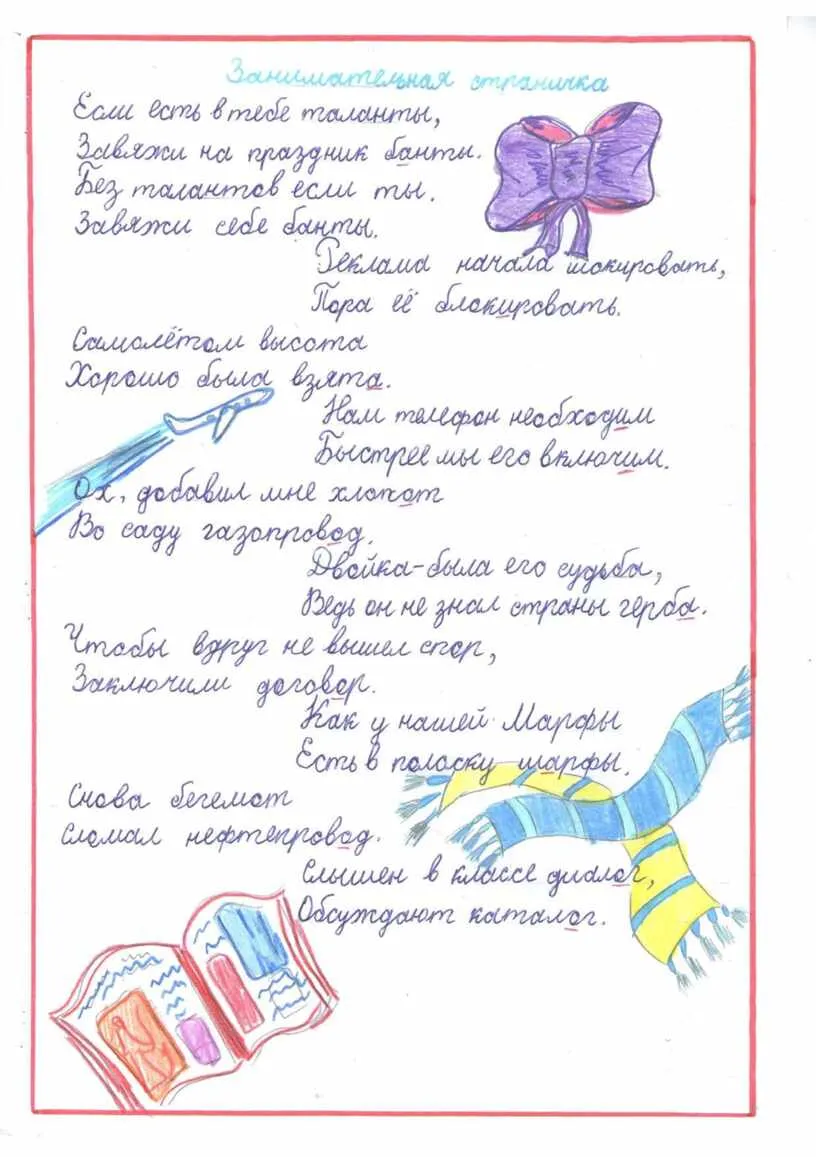 Занимательная страничка
Если есть в тебе таланты,
Завяжи на праздник банты.
Без талантов если ты.
Завяжи себе банты.
Реклама начала шокировать,
Пора её блокировать.
Самолётом высота
Хорошо была взята.
Нам телефон необходим
Быстрее мы его включим.
Ох, добавил мне хлопот
Во саду газопровод.
Двойка-была его судьба,
Ведь он не знал страны герба.
Чтобы вдруг не вышел спор,
Заключили договор.
Как у нашей Марфы
Есть в полоску шарфы.
Снова бегемот
Сломал нефтепровод.
Слышен в классе диалог,
Обсуждают каталог.